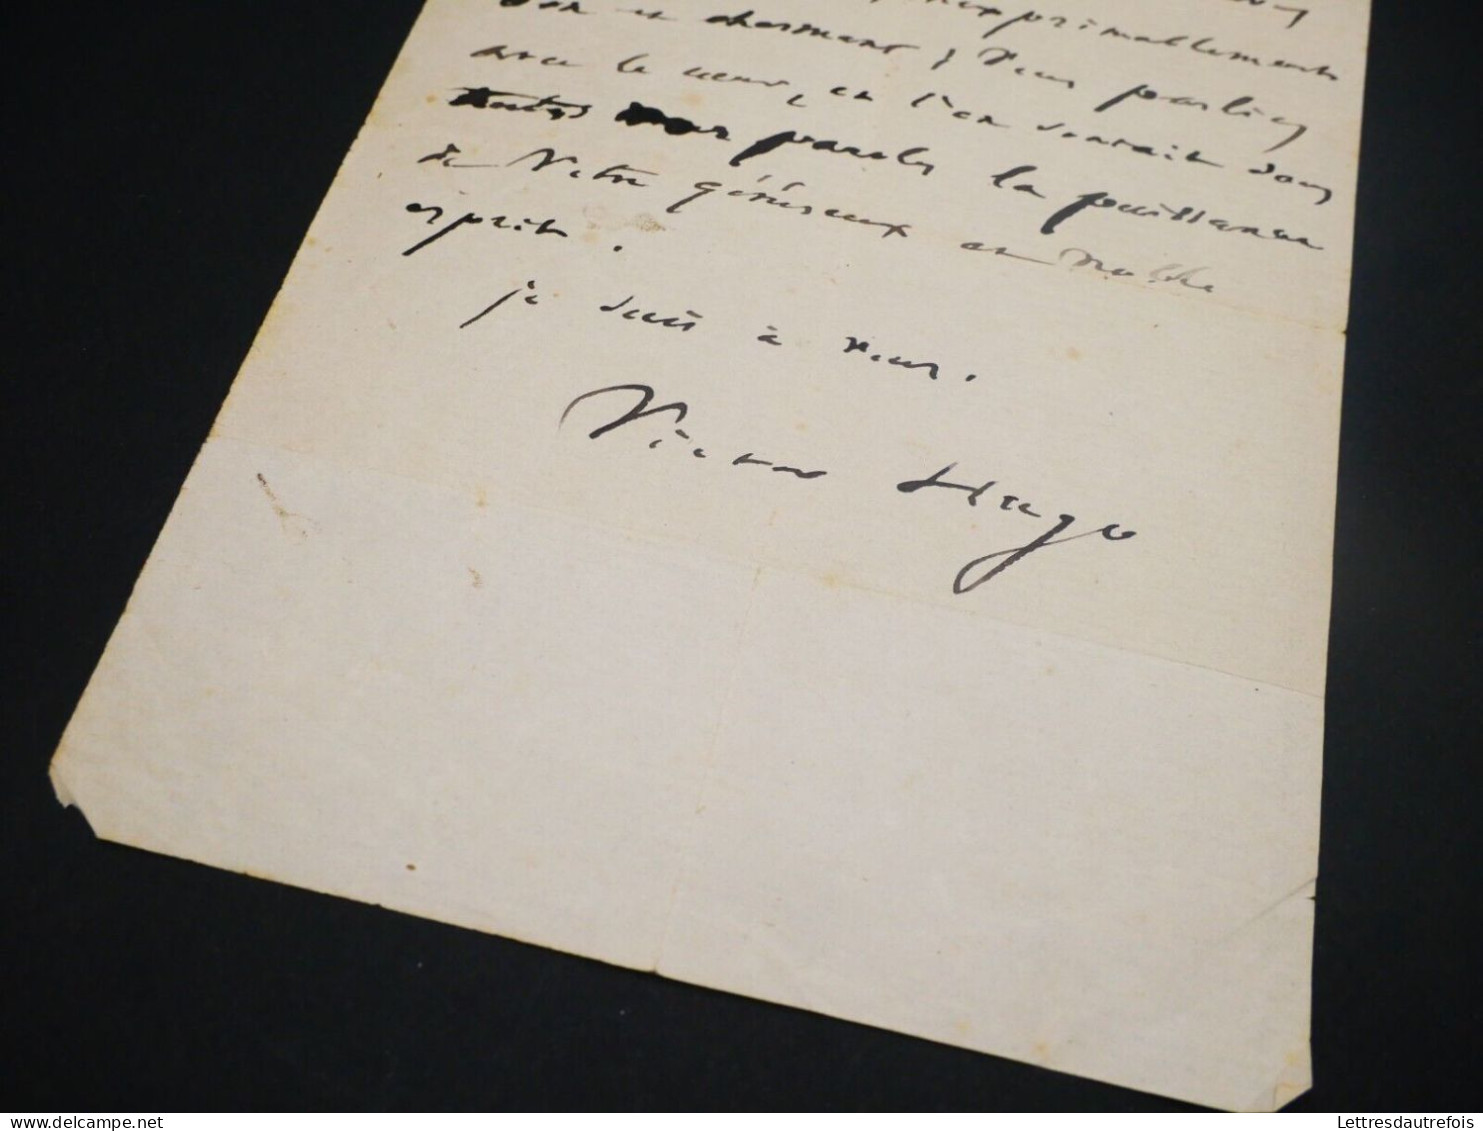 inexprimablement
bon et charmant ; Vous parlez
avec le cœur, et l'on sent sous
toutes vos paroles la puissance
de Votre généreux et noble
esprit.
je suis à vous.
Victor Hugo
delcampe.net
Lettresdautrefois